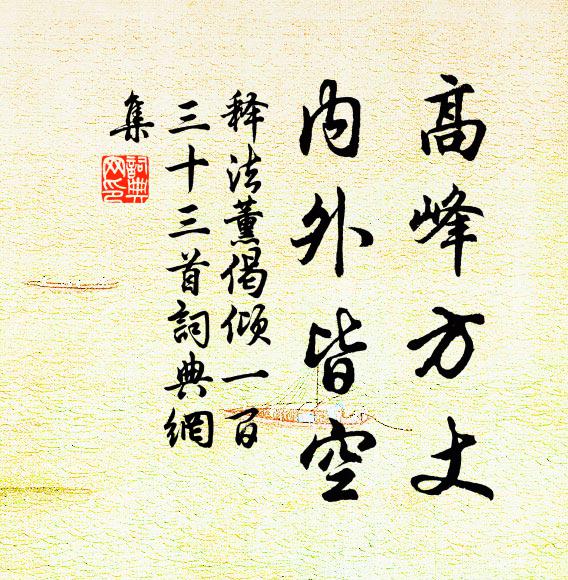 高峰方丈
内外皆空
释法薰偈倾一百
三十三首詞典網
集
詞典網印